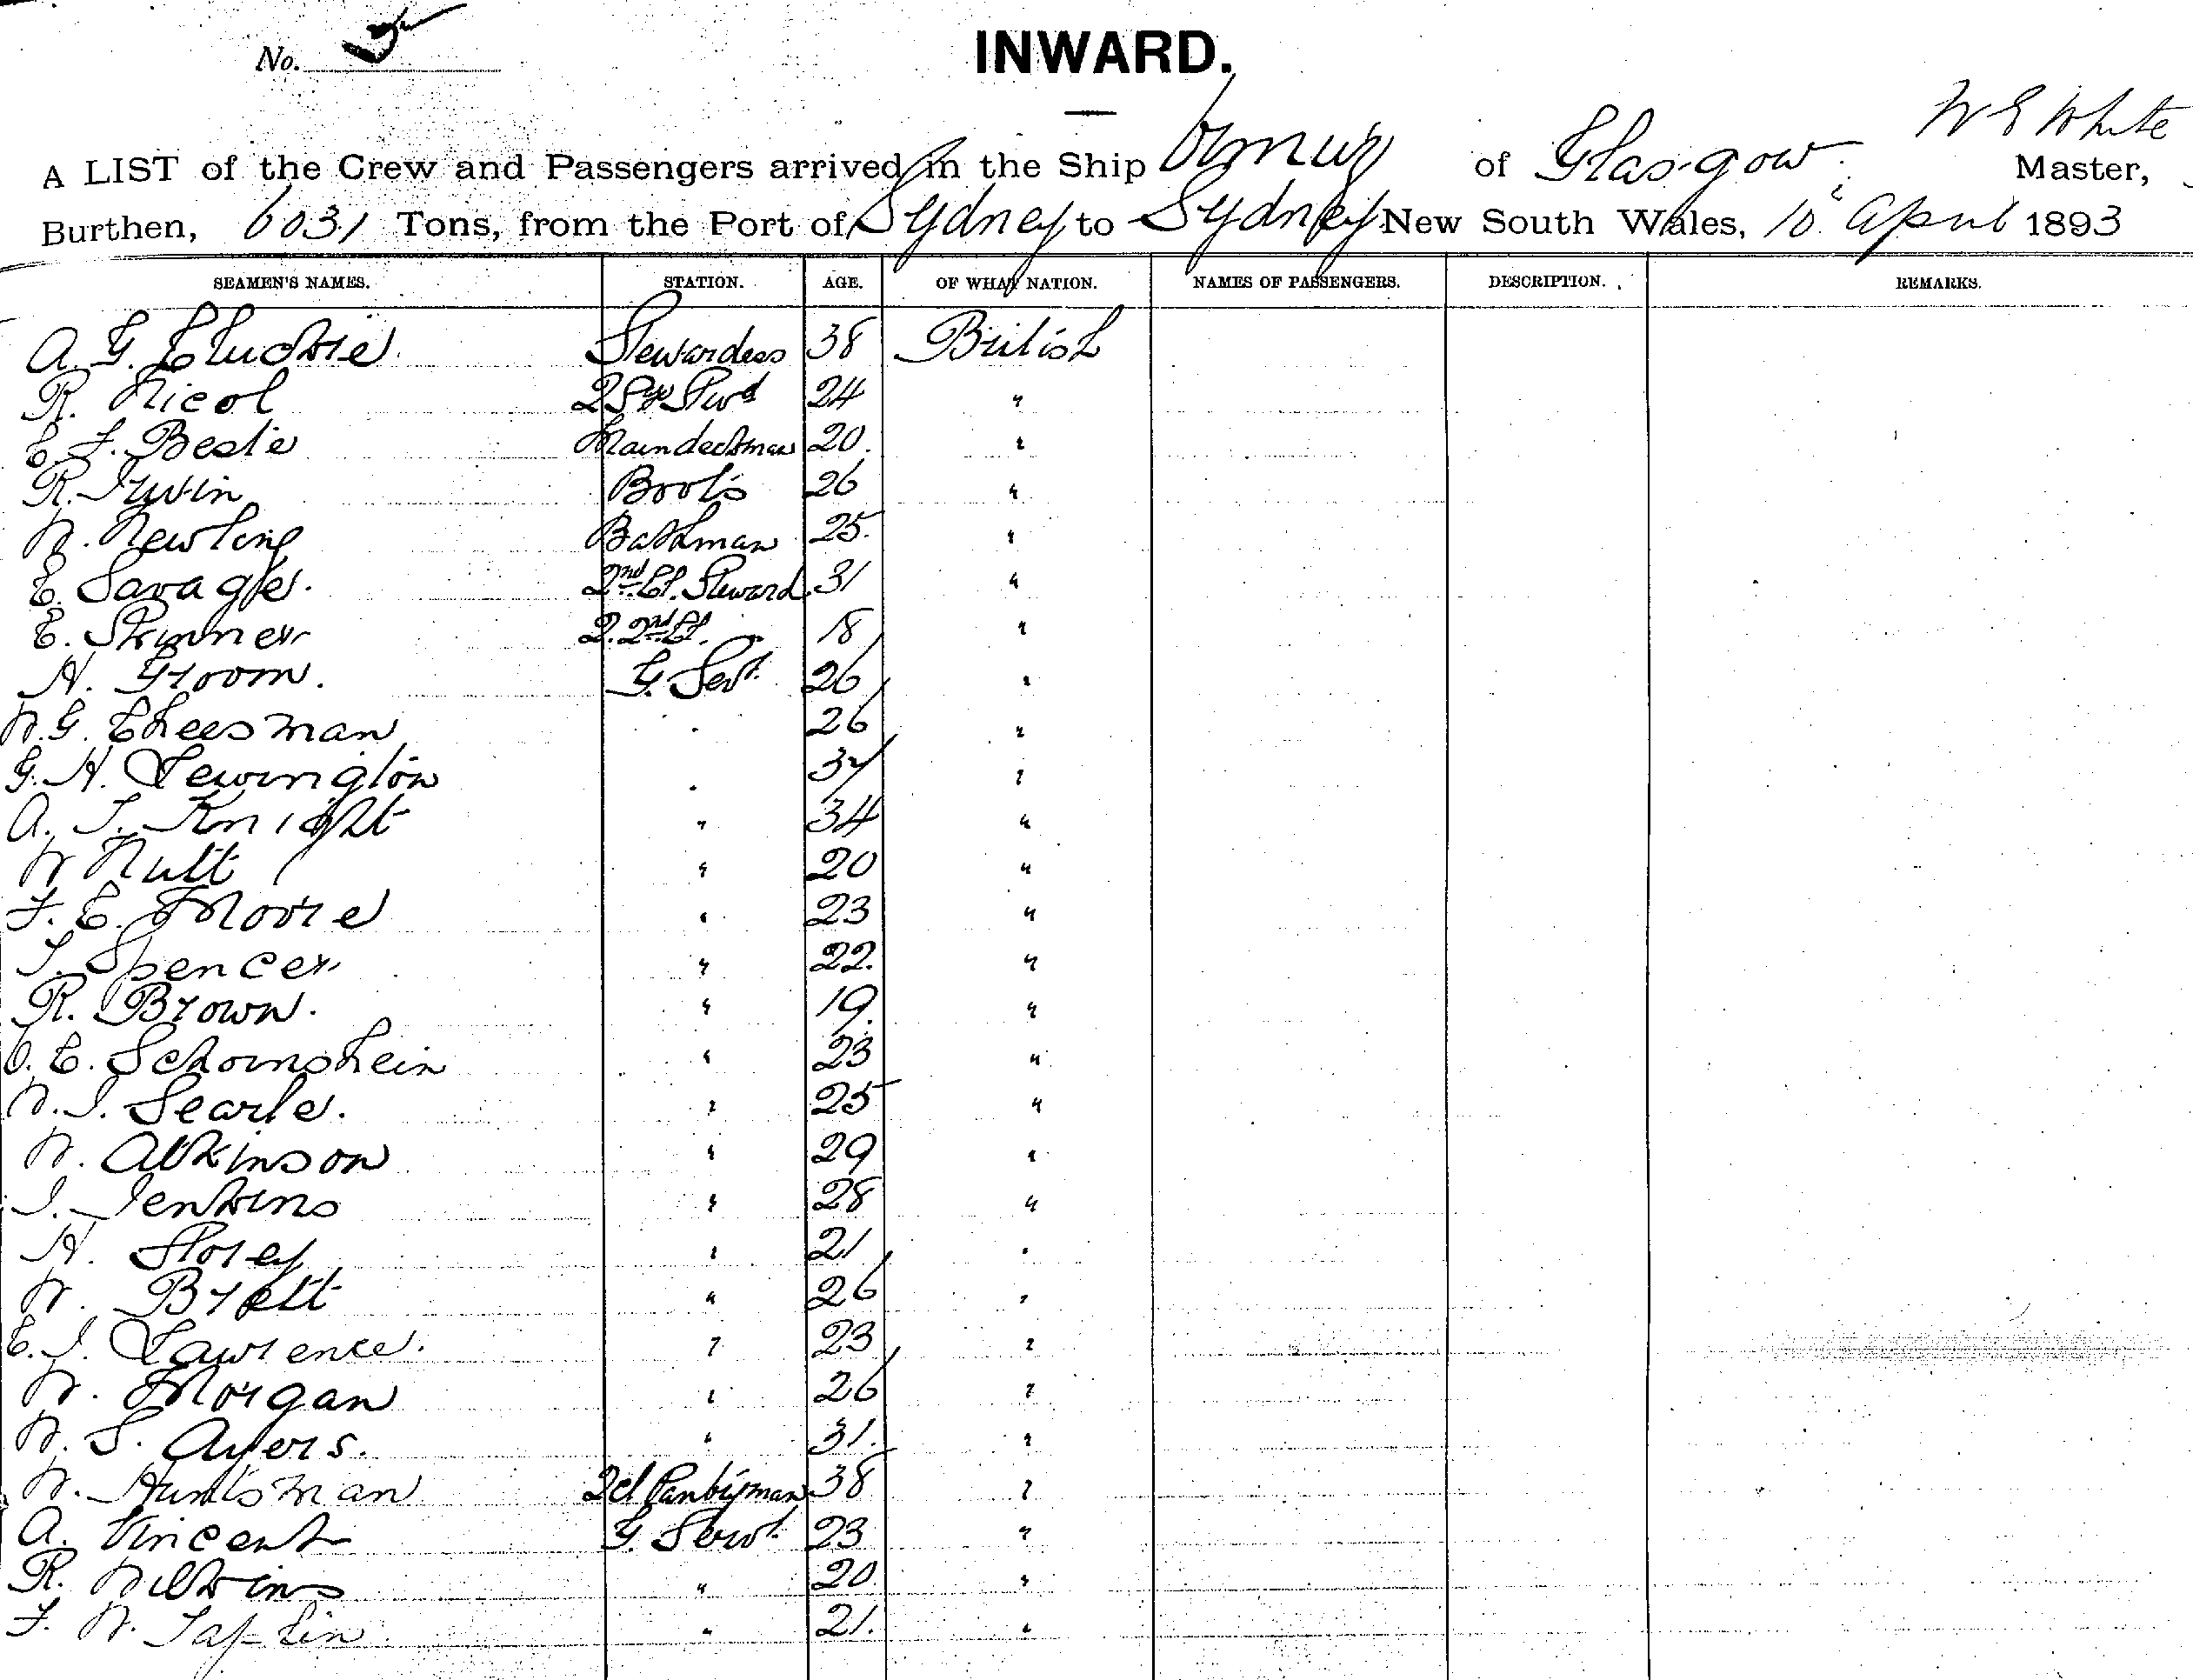 No.
INWARD.
W E White
A LIST of the Crew and Passengers arrived in the Ship Ormuz of Glasgow Master,
Burthen, 6031 Tons, from the Port of Sydney to Sydney New South Wales, 10 April 1893
SEAMEN'S NAMES. STATION. AGE. OF WHAT NATION. NAMES OF PASSENGERS. DESCRIPTION. REMARKS.
A. G. Stewardess 38 British
R. Nicol 24 "
C. F. Beste Maindeckman 20 "
R. Irwin Boots 26 "
W. Newling Bathman 25 "
E. Savage. 2nd Cl. Steward 31 "
E. Skinner 2. 2nd Cl. 18 "
H. Groom. G. Servt. 26 "
W. G. Cheesman " 26 "
G. H. Lewington " 37 "
A. J. Knight " 34 "
W Nutt " 20 "
F. E. Moore " 23 "
J. Spencer " 22. "
R. Brown. " 19. "
E. Schornshein " 23 "
W. J. Searle. " 25 "
W. Atkinson " 29 "
J. Jenkins " 28 "
H. Storey " 21 "
W. Brett " 26 "
E. J. Lawrence. " 23 "
W. Morgan " 26 "
W. S. Ayers. " 31. "
W. Huntsman 2 cl Pantryman 38 "
A. Vincent G. Servt. 23 "
R. Wilkins " 20 "
F. W. Taplin " 21. "